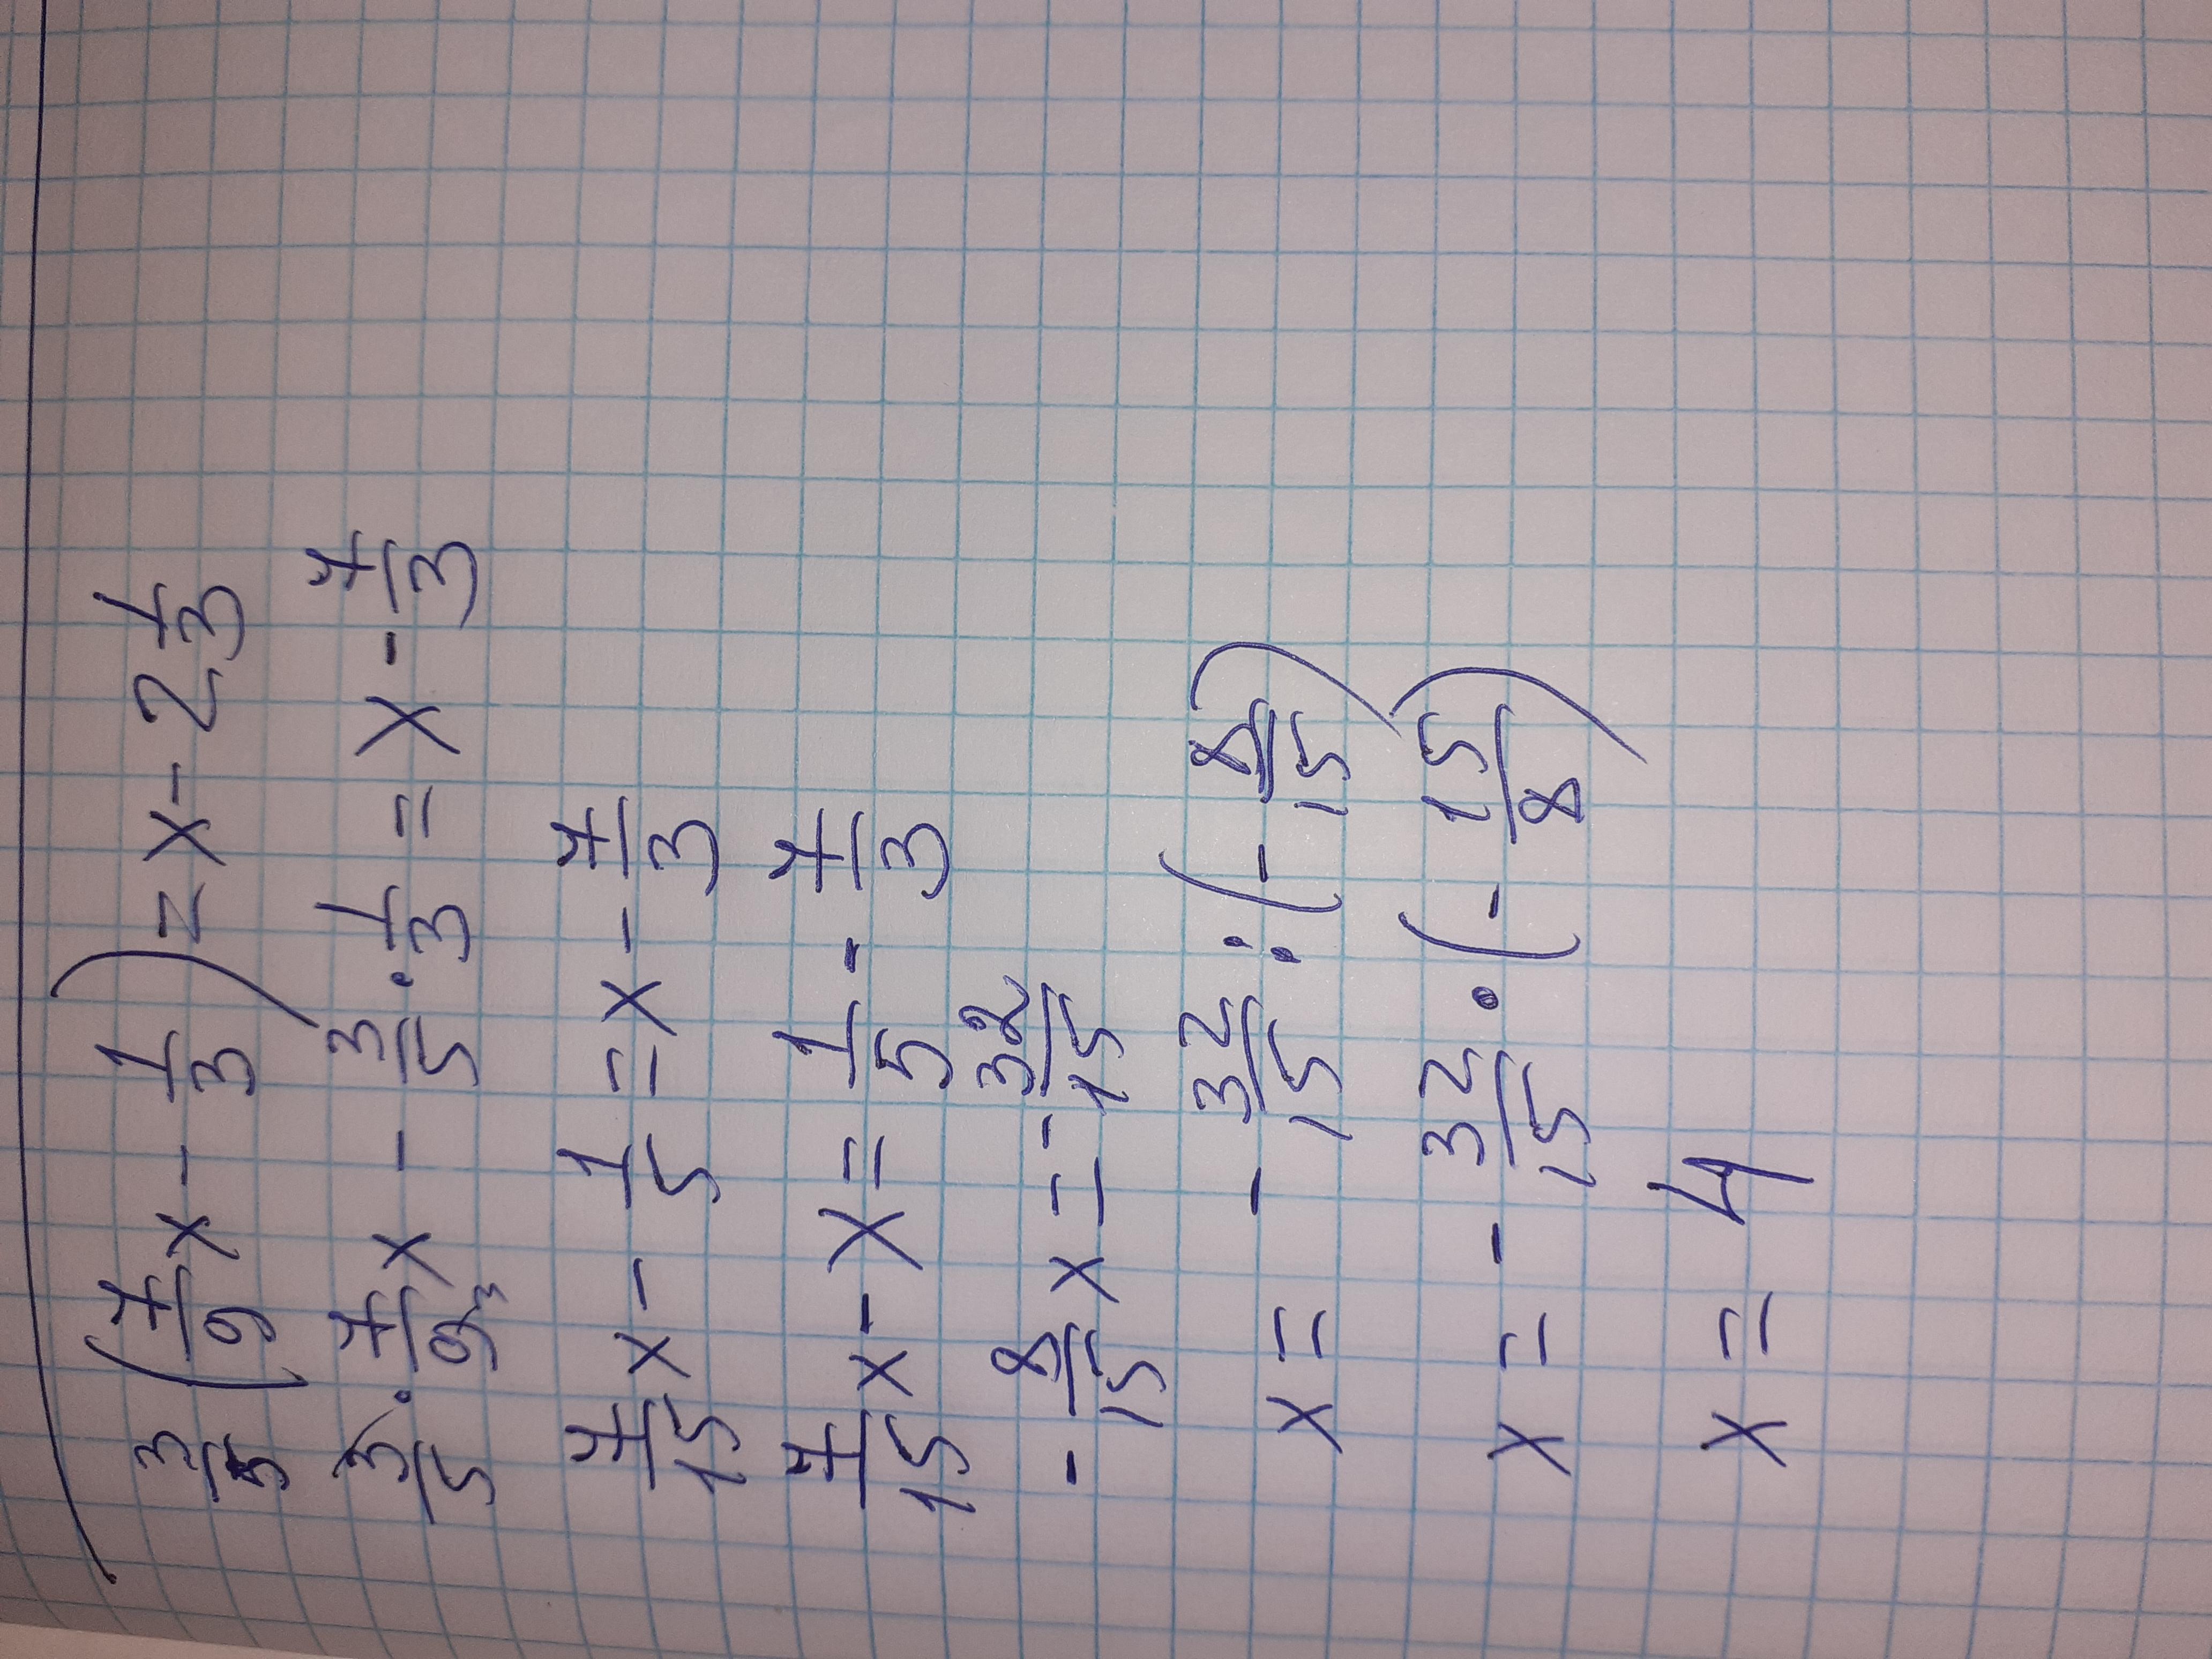 3/5 (7/9 x - 1/3) = x - 2 1/3
3/5 · 7/9 3 x - 3/5 · 1/3 = x - 7/3
7/15 x - 1/5 = x - 7/3
7/15 x - x = 1/5 - 7/3
- 8/15 x = - 32/15
x = - 32/15 : (- 8/15)
x = - 32/15 · (- 15/8)
x = 4